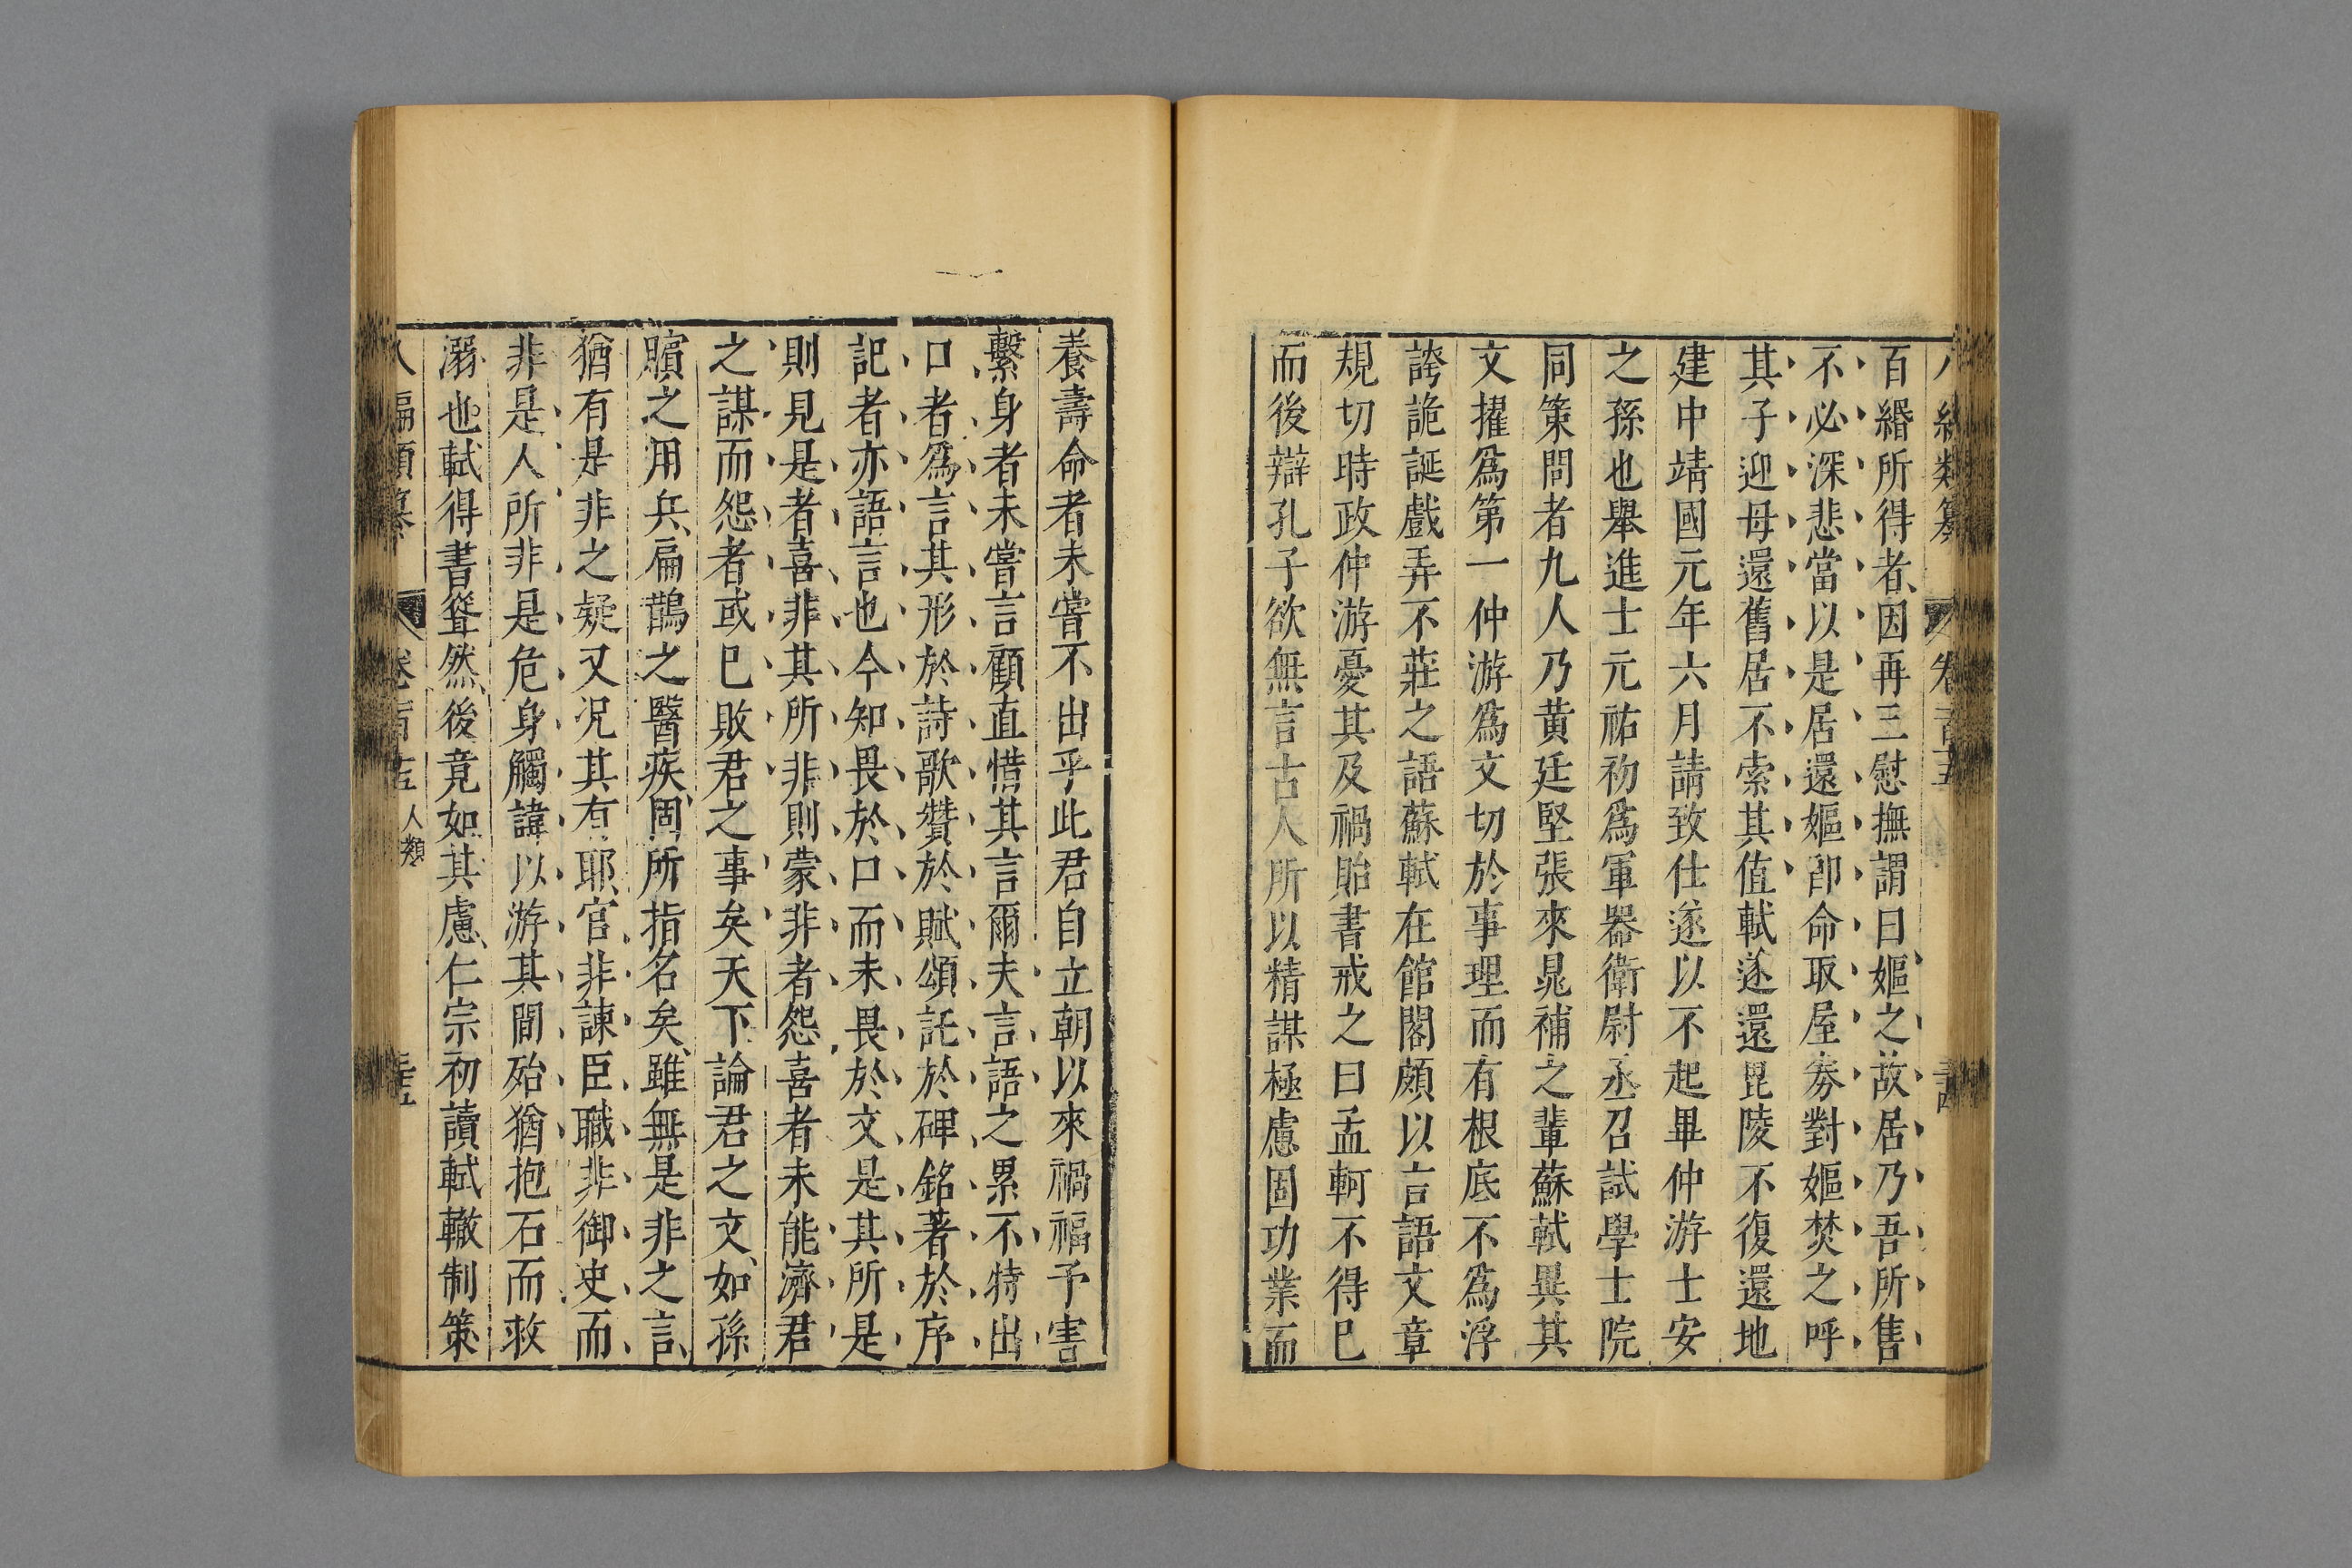 百緡所得者因再三慰撫謂曰嫗之故居乃吾所售
不必深悲當以是居還嫗卽命取屋劵對嫗焚之呼
其子迎母還舊居不索其值軾遂還毘陵不復還地
建中靖國元年六月請致仕遂以不起畢仲游士安
之孫也舉進士元祐初爲軍器衛尉丞召試學士院
同策問者九人乃黃廷堅張來晁補之輩蘇軾異其
文擢爲第一仲游爲文切於事理而有根底不爲浮
誇詭誕戲弄不莊之語蘇軾在館閣頗以言語文章
規切時政仲游憂其及禍貽書戒之曰孟軻不得已
而後辯孔子欲無言古人所以精謀極慮固功業而
養壽命者未嘗不出乎此君自立朝以來禍福予害
繫身者未嘗言顧直惜其言爾夫言語之累不特出
口者爲言其形於詩歌贊於賦頌託於碑銘著於序
記者亦語言也今知畏於口而未畏於文是其所是
則見是者喜非其所非則蒙非者怨喜者未能濟君
之謀而怨者或已敗君之事矣天下論君之文如孫
臏之用兵扁鵲之醫疾固所指名矣雖無是非之言
猶有是非之疑又況其有耶官非諫臣職非御史而
非是人所非是危身觸諱以游其間殆猶抱石而救
溺也軾得書聳然後竟如其慮仁宗初讀軾轍制策
人類